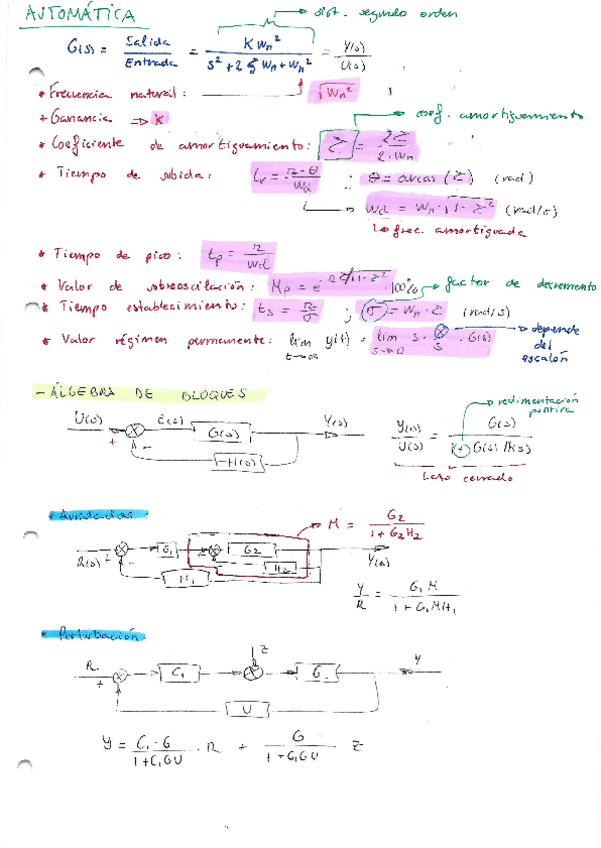 AUTOMÁTICA
sist. segundo orden
G(s) = Salida / Entrada = K Wn² / s² + 2 ξ Wn + Wn² = Y(s) / U(s)
* Frecuencia natural: √Wn²
* Ganancia => K
coef. amortiguamiento
* Coeficiente de amortiguamiento: Z = 2Z / 2·Wn
* Tiempo de subida: tr = π - θ / Wd ; θ = arcos (Z) (rad)
Wd = Wn · √1 - Z² (rad/s)
frec. amortiguada
* Tiempo de pico: tp = π / Wd
* Valor de sobreoscilación: Mp = e^-πZ/√1-Z² · 100% factor de decremento
* Tiempo establecimiento: ts = π / σ ; σ = Wn · Z (rad/s)
* Valor régimen permanente: lim t→∞ y(t) = lim s→0 s · ⊗ / s · G(s)
depende del escalón
- ÁLGEBRA DE BLOQUES
U(s) + - E(s) G(s) Y(s)
-H(s)
Y(s) / U(s) = G(s) / 1 + G(s) H(s)
Lazo cerrado
* Anidadas:
R(s) + - G1 G2 Y(s)
H1 H2
M = G2 / 1 + G2H2
Y / R = G1 M / 1 + G1MH1
* Perturbación
Z
R + C1 G Y
U
Y = C1 · G / 1 + C1GU · R + G / 1 + C1GU Z